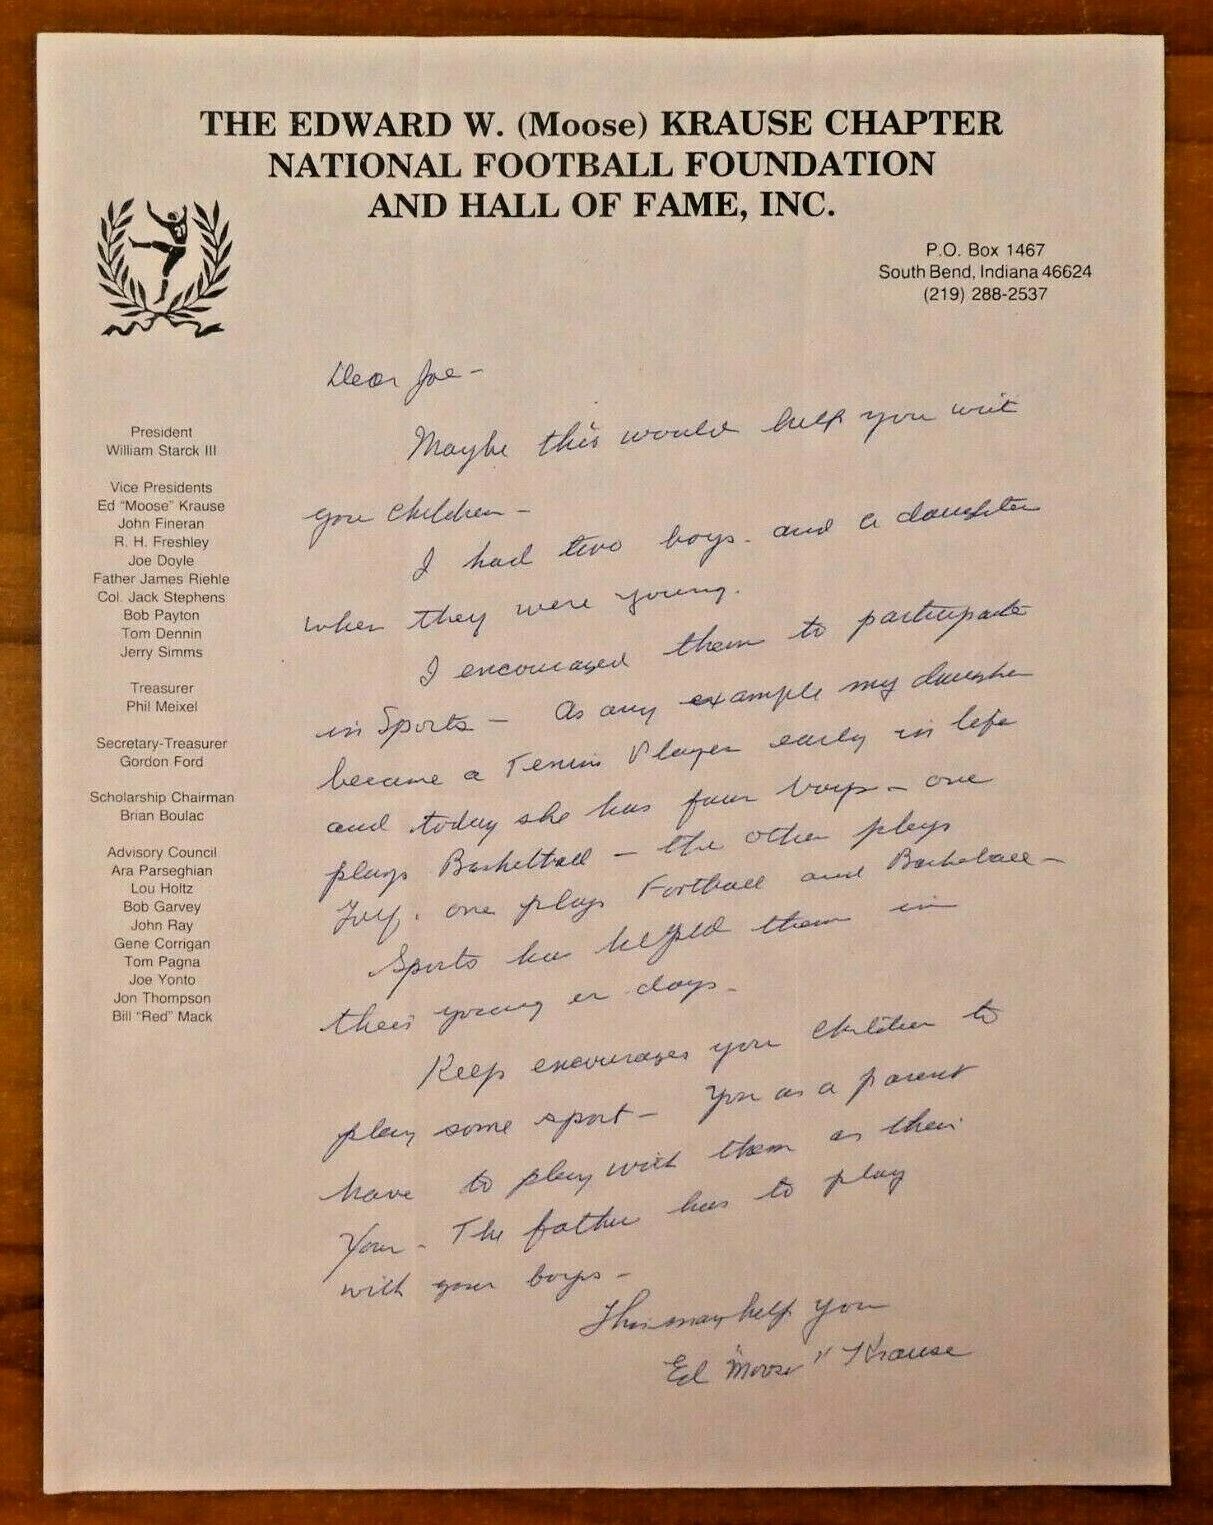 THE EDWARD W. (Moose) KRAUSE CHAPTER
NATIONAL FOOTBALL FOUNDATION
AND HALL OF FAME, INC.
P.O. Box 1467
South Bend, Indiana 46624
(219) 288-2537
President
William Starck III
Vice Presidents
Ed "Moose" Krause
John Fineran
R. H. Freshley
Joe Doyle
Father James Riehle
Col. Jack Stephens
Bob Payton
Tom Dennin
Jerry Simms
Treasurer
Phil Meixel
Secretary-Treasurer
Gordon Ford
Scholarship Chairman
Brian Boulac
Advisory Council
Ara Parseghian
Lou Holtz
Bob Garvey
John Ray
Gene Corrigan
Tom Pagna
Joe Yonto
Jon Thompson
Bill "Red" Mack
Dear Joe -
Maybe this would help you wit
your children -
I had two boys. and a daughter
when they were young.
I encouraged them to participate
in Sports - As any example my daughter
became a Tennis Player early in life
and today she has four boys - one
plays Basketball - the other plays
one plays Football and Basketball -
Sports has helped them in
their young er days -
Keep encourages you children to
play some sport - You as a parent
have to play with them as their
The father has to play
with your boys -
This may help you
Ed "Moose" Krause